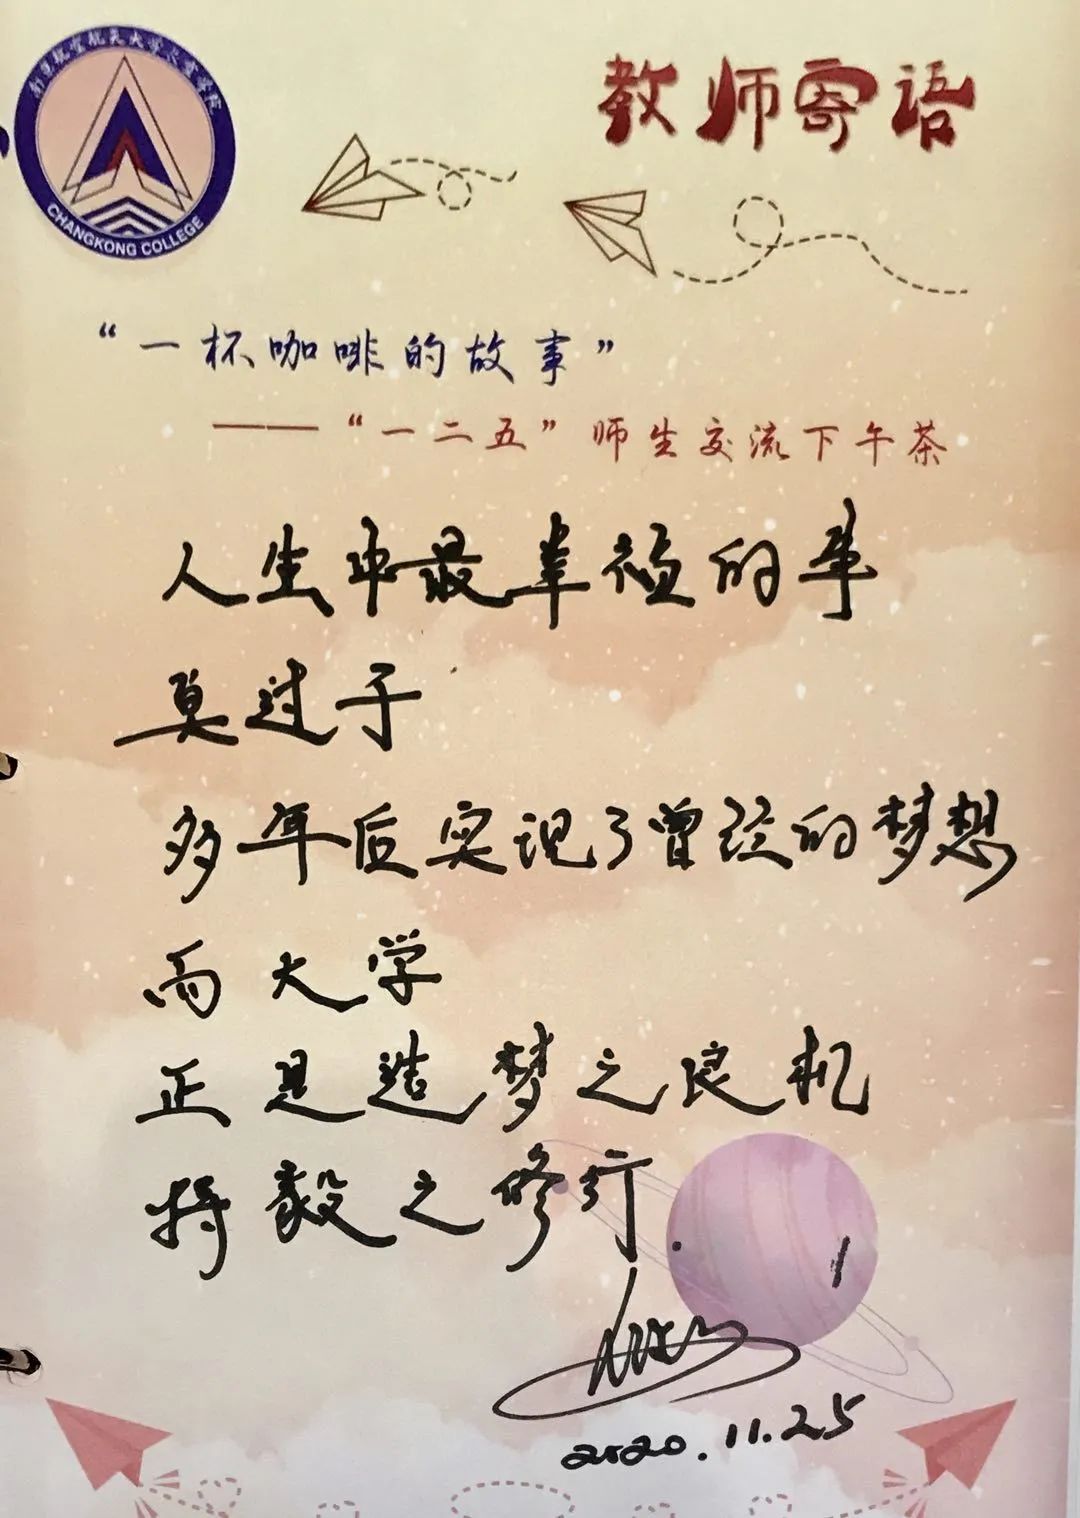 南京航空航天大学长空学院
CHANGKONG COLLEGE
教师寄语
“一杯咖啡的故事”
——“一二五”师生交流下午茶
人生中最幸福的事
莫过于
多年后实现了曾经的梦想
而大学
正是造梦之良机
持毅之修行.
2020.11.25